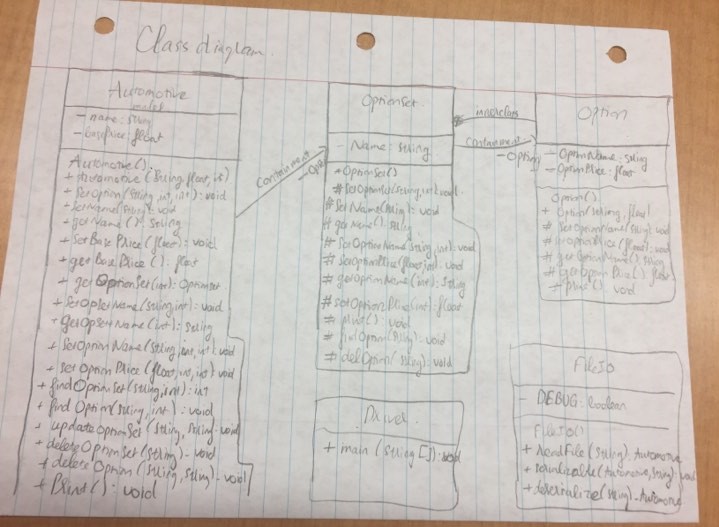 Class diagram
Automotive
- name: string
- basePrice: float
Automotive()
+ Automotive (String, float, int)
+ SetOption (String, int, int): void
+ SetName (String): void
+ getName (): String
+ SetBasePrice (float): void
+ getBasePrice (): float
+ getOptionSet (int): OptionSet
+ SetOpsetName (String, int): void
+ getOpsetName (int): String
+ SetOptionName (String, int, int): void
+ SetOptionPrice (float, int, int): void
+ findOptionSet (String, int): int
+ findOption (String, int): void
+ updateOptionSet (String, String): void
+ deleteOptionSet (String): void
+ deleteOption (String, String): void
+ Print(): void
Containment
OptionSet
- Name: String
+ OptionSet()
# SetOptionSet (String, int): void
# SetName (String): void
# getName(): String
# SetOptionName (String, int): void
# SetOptionPrice (float, int): void
# getOptionName (int): String
# setOptionPrice (int): float
# print(): void
# findOption (String): void
# delOption (String): void
innerclass
Containment
- Option
Option
- OptionName: String
- OptionPrice: float
Option()
+ Option (String, float)
# SetOptionName (String): void
# SetOptionPrice (float): void
# getOptionName(): String
# getOptionPrice(): float
+ print(): void
Driver
+ main (String []): void
FileIO
- DEBUG: boolean
FileIO()
+ readFile (String): Automotive
+ serializable (Automotive, String): void
+ deserialize (String): Automotive